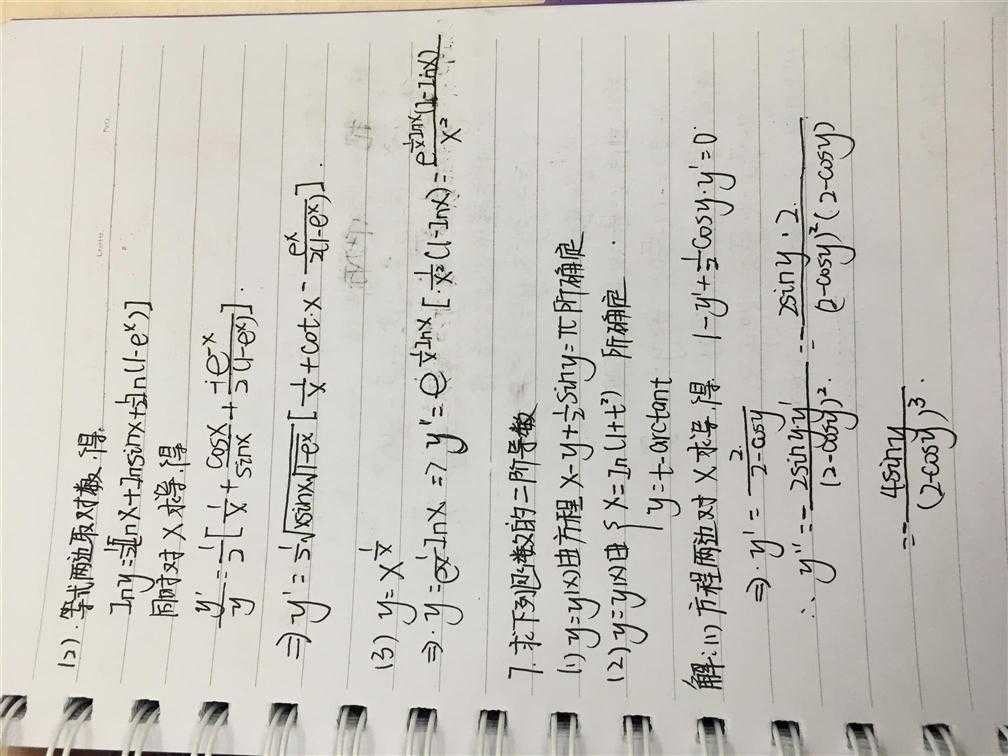 (2).等式两边取对数.得.
lny=½[lnx+lnsinx+½ln(1-eˣ)]
同时对X求导.得
y'/y=1/2[1/x+cosx/sinx+-e^-x/2(1-eˣ)].
⇒y'=1/2√xsinx√1-ex[1/x+cot·x-eˣ/2(1-eˣ)].
(3) y=x^(1/x)
⇒.y=e^(1/x)lnx⇒y'=e^(1/x lnx)[1/x²(1-lnx)=e^(1/x lnx)(1-lnx)/x²
7.求下列函数的二阶导数
(1)y=y(x)由方程x-y+½siny=π所确定
(2)y=y(x)由{x=ln(1+t²) 所确定
y=t-arctant
解:(1)方程两边对X求导.得 1-y'+½cosy·y'=0.
⇒.y'=2/2-cosy
∴y''=-2siny·y'/(2-cosy)².=-2siny·2/(2-cosy)²(2-cosy)
=-4siny/(2-cosy)³.